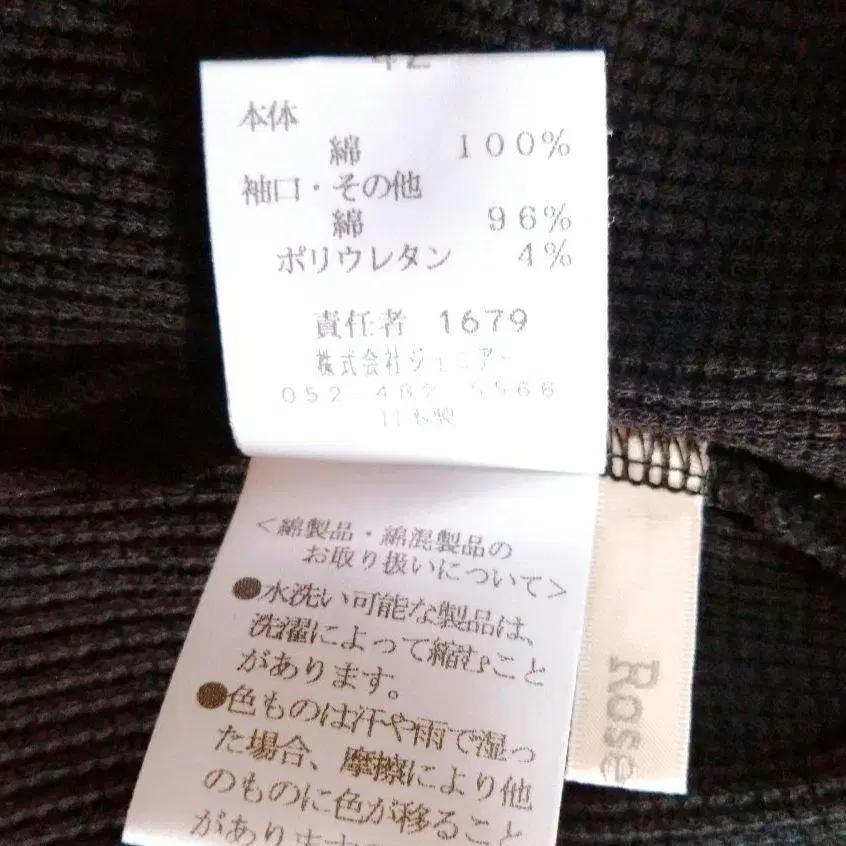 42
本体
綿 100%
袖口・その他
綿 96%
ポリウレタン 4%
責任者 1679
株式会社ジュニアー
052-482-5566
日本製
<綿製品・綿混製品の
お取り扱いについて>
●水洗い可能な製品は、
洗濯によって縮むこと
があります。
●色ものは汗や雨で湿っ
た場合、摩擦により他
のものに色が移ること
があります
Rose